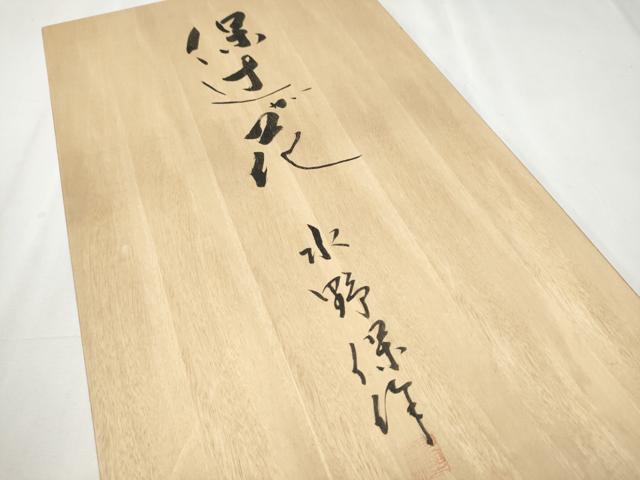 保達花
水野保作